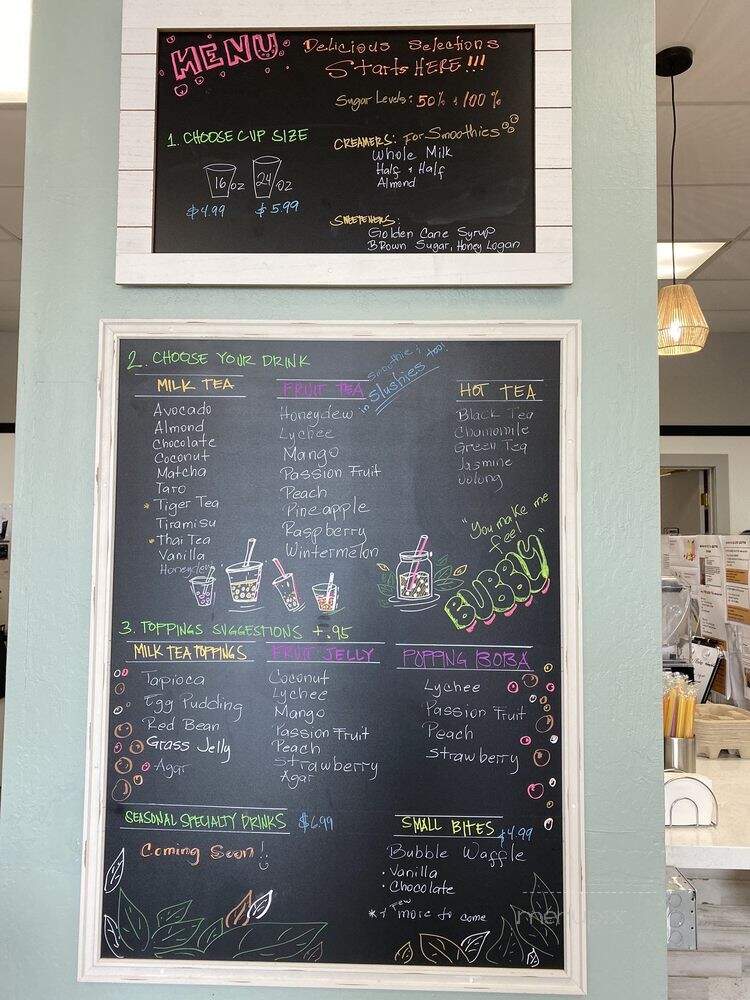 MENU
Delicious Selections
Starts HERE!!!
Sugar Levels: 50% & 100%
1. CHOOSE CUP SIZE
16 oz
24 oz
$4.99
$5.99
CREAMERS: For Smoothies
Whole Milk
Half & Half
Almond
SWEETENERS:
Golden Cane Syrup
Brown Sugar, Honey Logan
2. CHOOSE YOUR DRINK
MILK TEA
Avocado
Almond
Chocolate
Coconut
Matcha
Taro
* Tiger Tea
Tiramisu
* Thai Tea
Vanilla
Honeydew
FRUIT TEA
in Slushies
Smoothie & too!
Honeydew
Lychee
Mango
Passion Fruit
Peach
Pineapple
Raspberry
Wintermelon
HOT TEA
Black Tea
Chamomile
Green Tea
Jasmine
Oolong
"You make me
feel
BUBBLY"
3. TOPPINGS SUGGESTIONS +.95
MILK TEA TOPPINGS
Tapioca
Egg Pudding
Red Bean
Grass Jelly
Agar
FRUIT JELLY
Coconut
Lychee
Mango
Passion Fruit
Peach
Strawberry
Agar
POPPING BOBA
Lychee
Passion Fruit
Peach
Strawberry
SEASONAL SPECIALTY DRINKS $6.99
Coming Soon!
SMALL BITES $4.99
Bubble Waffle
• Vanilla
• Chocolate
* & few more to come